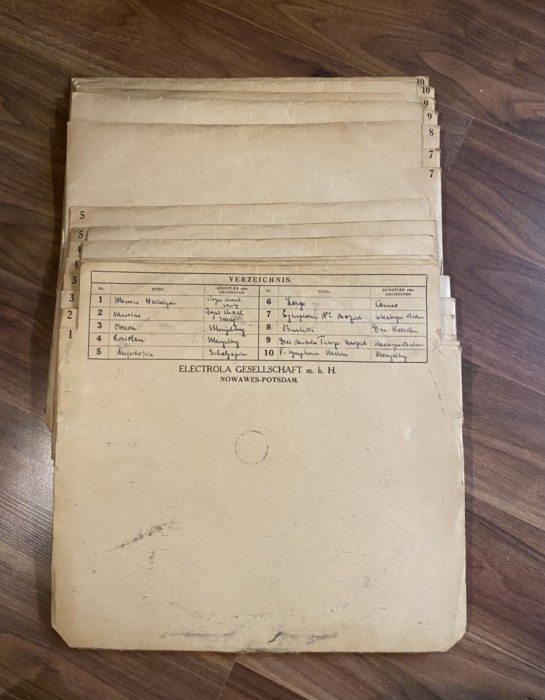 10
10
9
9
8
7
7
5
5
3
3
2
1
VERZEICHNIS.
Nr. TITEL. KÜNSTLER oder ORCHESTER Nr. TITEL. KÜNSTLER oder ORCHESTER
1 Messias Halleluja Royal Choral 6 Largo Caruso
2 Messias Royal Choral 7 Symphonie Mozart
3 Oberon Mengelberg 8
4 Coriolan Mengelberg 9 Drei deutsche Tänze Mozart
5 Mefistofele Schaljapin 10 Symphonie Mahler Mengelberg
ELECTROLA GESELLSCHAFT m. b. H.
NOWAWES-POTSDAM.